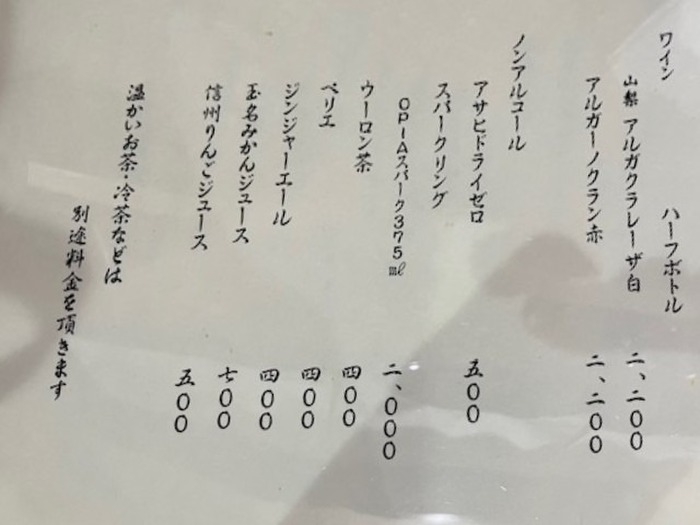 ワイン ハーフボトル
山梨 アルガクラレーザ白 二、二〇〇
アルガーノクラン赤 二、二〇〇
ノンアルコール
アサヒドライゼロ 五〇〇
スパークリング
OPIAスパーク375㎖ 二、〇〇〇
ウーロン茶 四〇〇
ペリエ 四〇〇
ジンジャーエール 四〇〇
玉名みかんジュース 七〇〇
信州りんごジュース 五〇〇
温かいお茶・冷茶などは
別途料金を頂きます